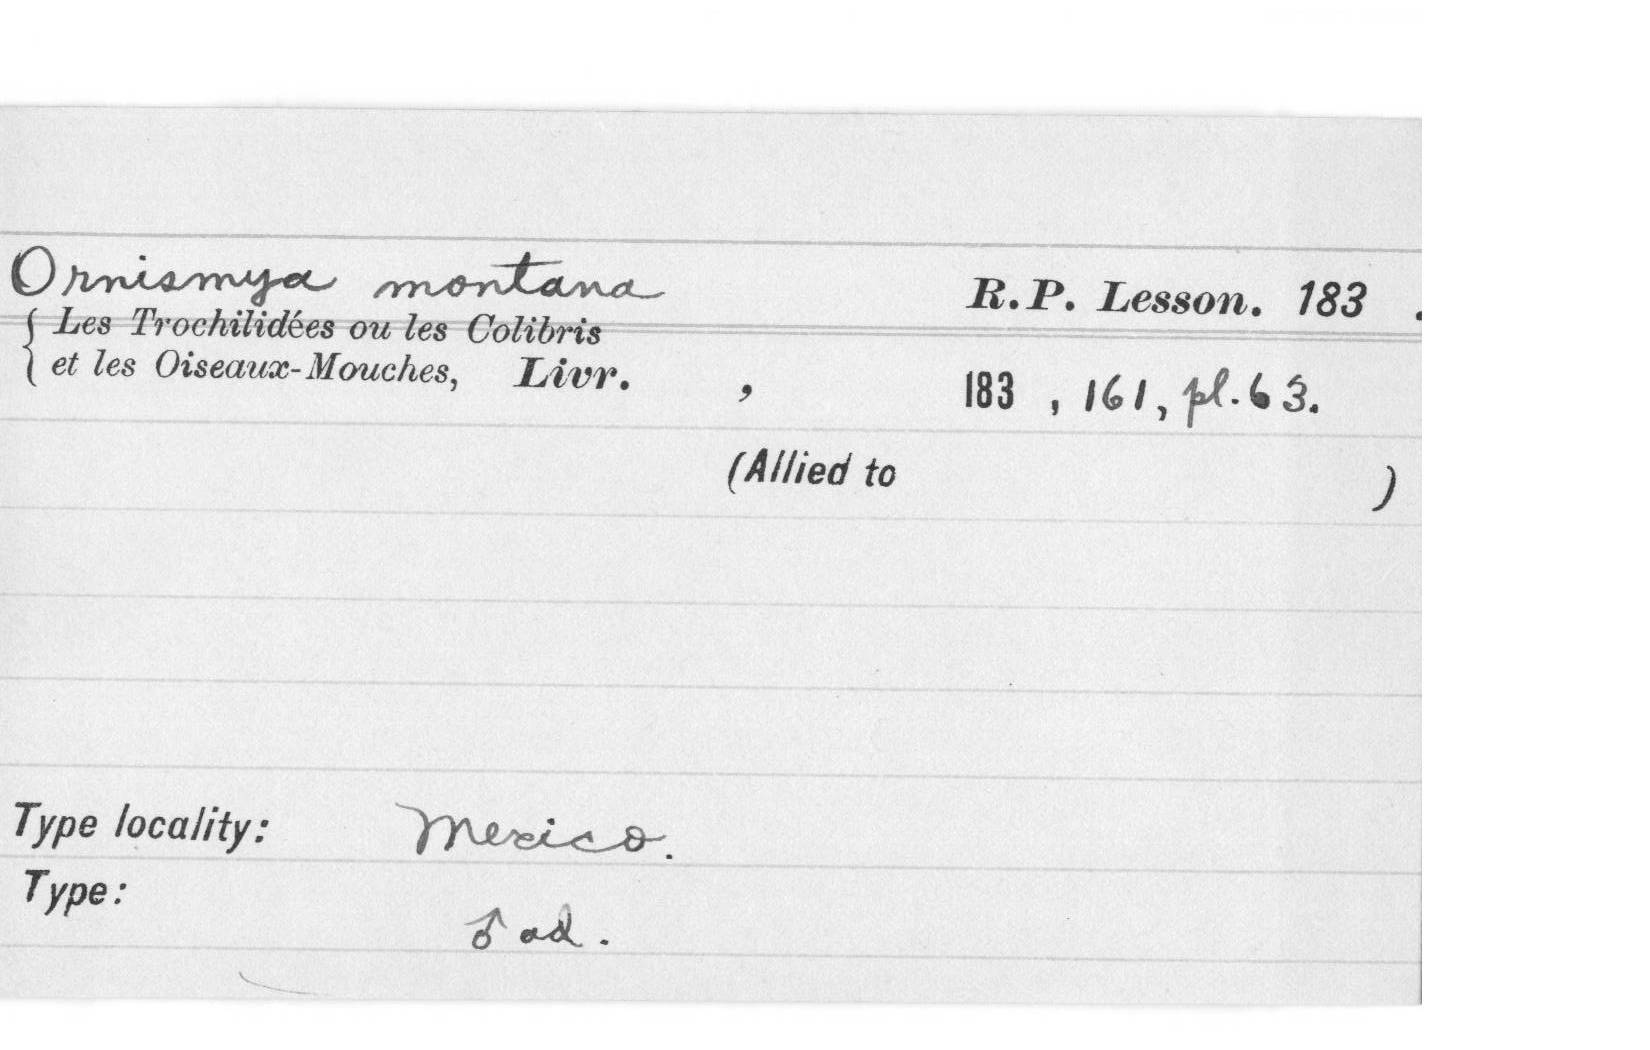 Ornismya montana R.P. Lesson. 183 .
{ Les Trochilidées ou les Colibris
et les Oiseaux-Mouches, Livr. , 183 , 161, pl. 63.
(Allied to )
Type locality: Mexico.
Type:
♂ ad.